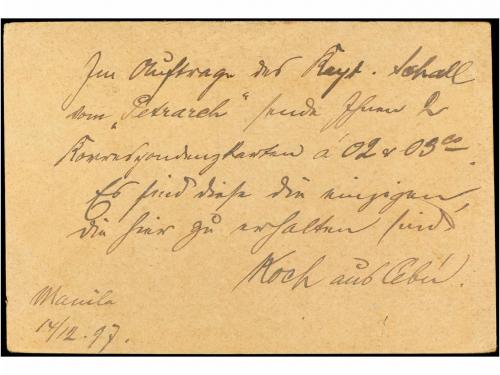 Im Auftrage des Kapt. Schall
vom „Petrarch“ sende Ihnen 2
Korrespondenzkarten á 02 & 03 cs.
Es sind diese die einzigen,
die hier zu erhalten sind.
Koch aus Cebú.
Manila
14/12.97.